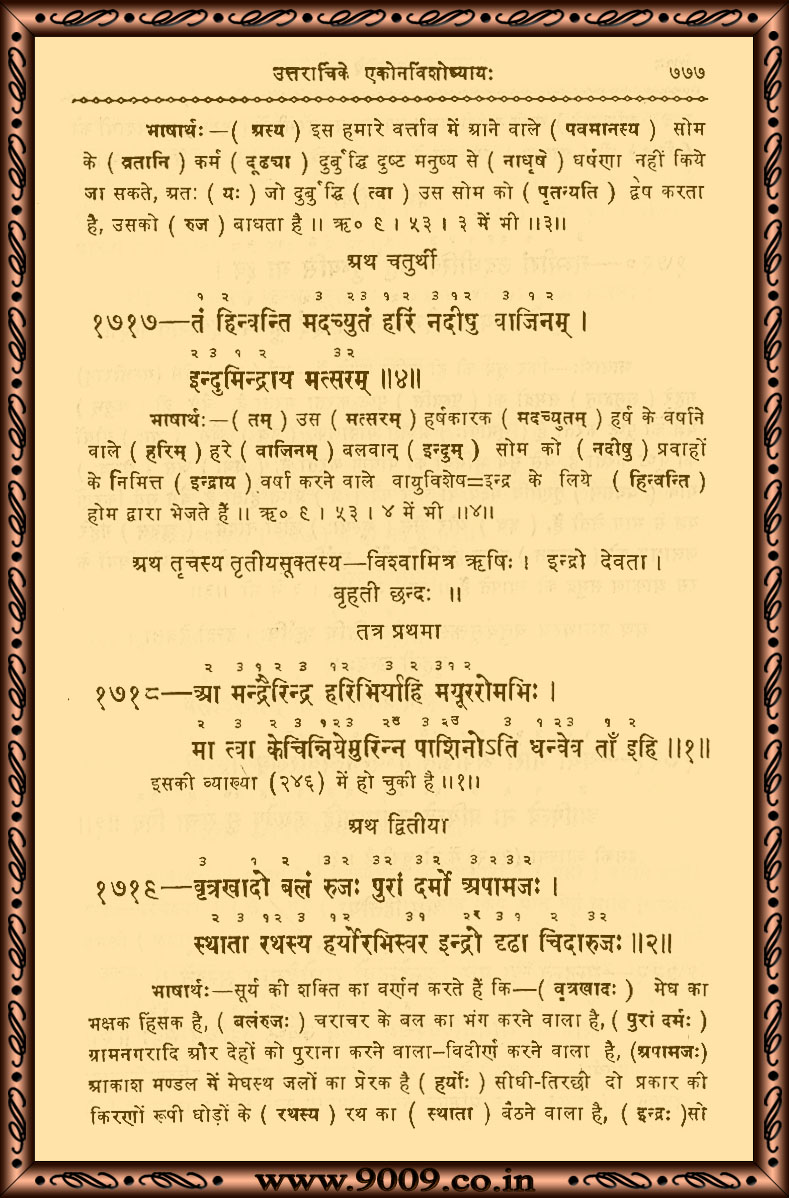 उत्तरार्चिके एकोनविंशोध्यायः ७७७
भाषार्थः—( अस्य ) इस हमारे वर्त्ताव में आने वाले ( पवमानस्य ) सोम
के ( व्रतानि ) कर्म ( दूढ्या ) दुर्बुद्धि दुष्ट मनुष्य से ( नाधृषे ) घर्षणा नहीं किये
जा सकते, अतः ( यः ) जो दुर्बुद्धि ( त्वा ) उस सोम को ( पृतन्यति ) द्वेष करता
है, उसको ( रुज ) बाधता है ॥ ऋ० ९ । ५३ । ३ में भी ॥३॥
अथ चतुर्थी
१ २ ३ २३ १ २ ३ १२ ३ १ २
१७१७—तं हिन्वन्ति मदच्युतं हरिं नदीषु वाजिनम् ।
२ ३ १ २ ३२
इन्दुमिन्द्राय मत्सरम् ॥४॥
भाषार्थः—( तम् ) उस ( मत्सरम् ) हर्षकारक ( मदच्युतम् ) हर्ष के वर्षाने
वाले ( हरिम् ) हरे ( वाजिनम् ) बलवान् ( इन्दुम् ) सोम को ( नदीषु ) प्रवाहों
के निमित्त ( इन्द्राय ) वर्षा करने वाले वायुविशेष=इन्द्र के लिये ( हिन्वन्ति )
होम द्वारा भेजते हैं ॥ ऋ० ९ । ५३ । ४ में भी ॥४॥
अथ तृचस्य तृतीयसूक्तस्य—विश्वामित्र ऋषिः । इन्द्रो देवता ।
वृहती छन्दः ॥
तत्र प्रथमा
२ ३ १ २ ३ १२ ३ २ ३१२
१७१८—आ मन्द्रैरिन्द्र हरिभिर्याहि मयूररोमभिः ।
२ ३ २ ३ १२३ २उ ३ २उ ३ १ २३ १ २
मा त्वा केचिन्नियेमुरिन्न पाशिनोऽति धन्वेव ताँ इहि ॥१॥
इसकी व्याख्या (२४६) में हो चुकी है ॥१॥
अथ द्वितीया
३ १ २ ३ २ ३२ ३ २ ३ २ ३ २
१७१९—वृत्रखादो बलं रुजः पुरां दर्मो अपामजः ।
२ ३ १२ ३ १२ ३१ २र ३ १ २ ३२
स्थाता रथस्य हर्योरभिस्वर इन्द्रो दृढा चिदारुजः ॥२॥
भाषार्थः—सूर्य की शक्ति का वर्णन करते हैं कि—( वृत्रखादः ) मेघ का
भक्षक हिंसक है, ( बलंरुजः ) चराचर के बल का भंग करने वाला है, ( पुरां दर्मः )
ग्रामनगरादि और देहों को पुराना करने वाला-विदीर्ण करने वाला है, (अपामजः)
आकाश मण्डल में मेघस्थ जलों का प्रेरक है ( हर्योः ) सीधी-तिरछी दो प्रकार की
किरणों रूपी घोड़ों के ( रथस्य ) रथ का ( स्थाता ) बैठने वाला है, ( इन्द्रः )सो
www.9009.co.in